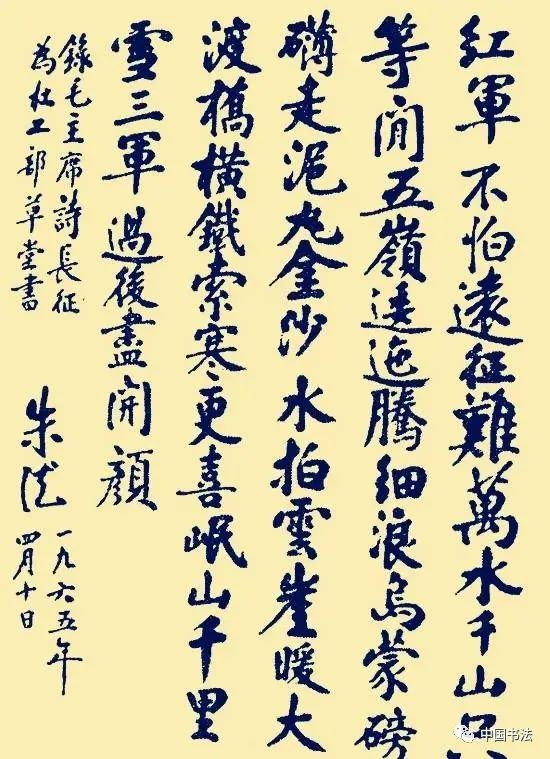 紅軍不怕遠征難萬水千山只
等閒五嶺逶迤騰細浪烏蒙磅
礴走泥丸金沙水拍雲崖暖大
渡橋橫鐵索寒更喜岷山千里
雪三軍過後盡開顏
錄毛主席詩長征
為杜工部草堂書
朱德
一九六五年
四月十日
中国书法